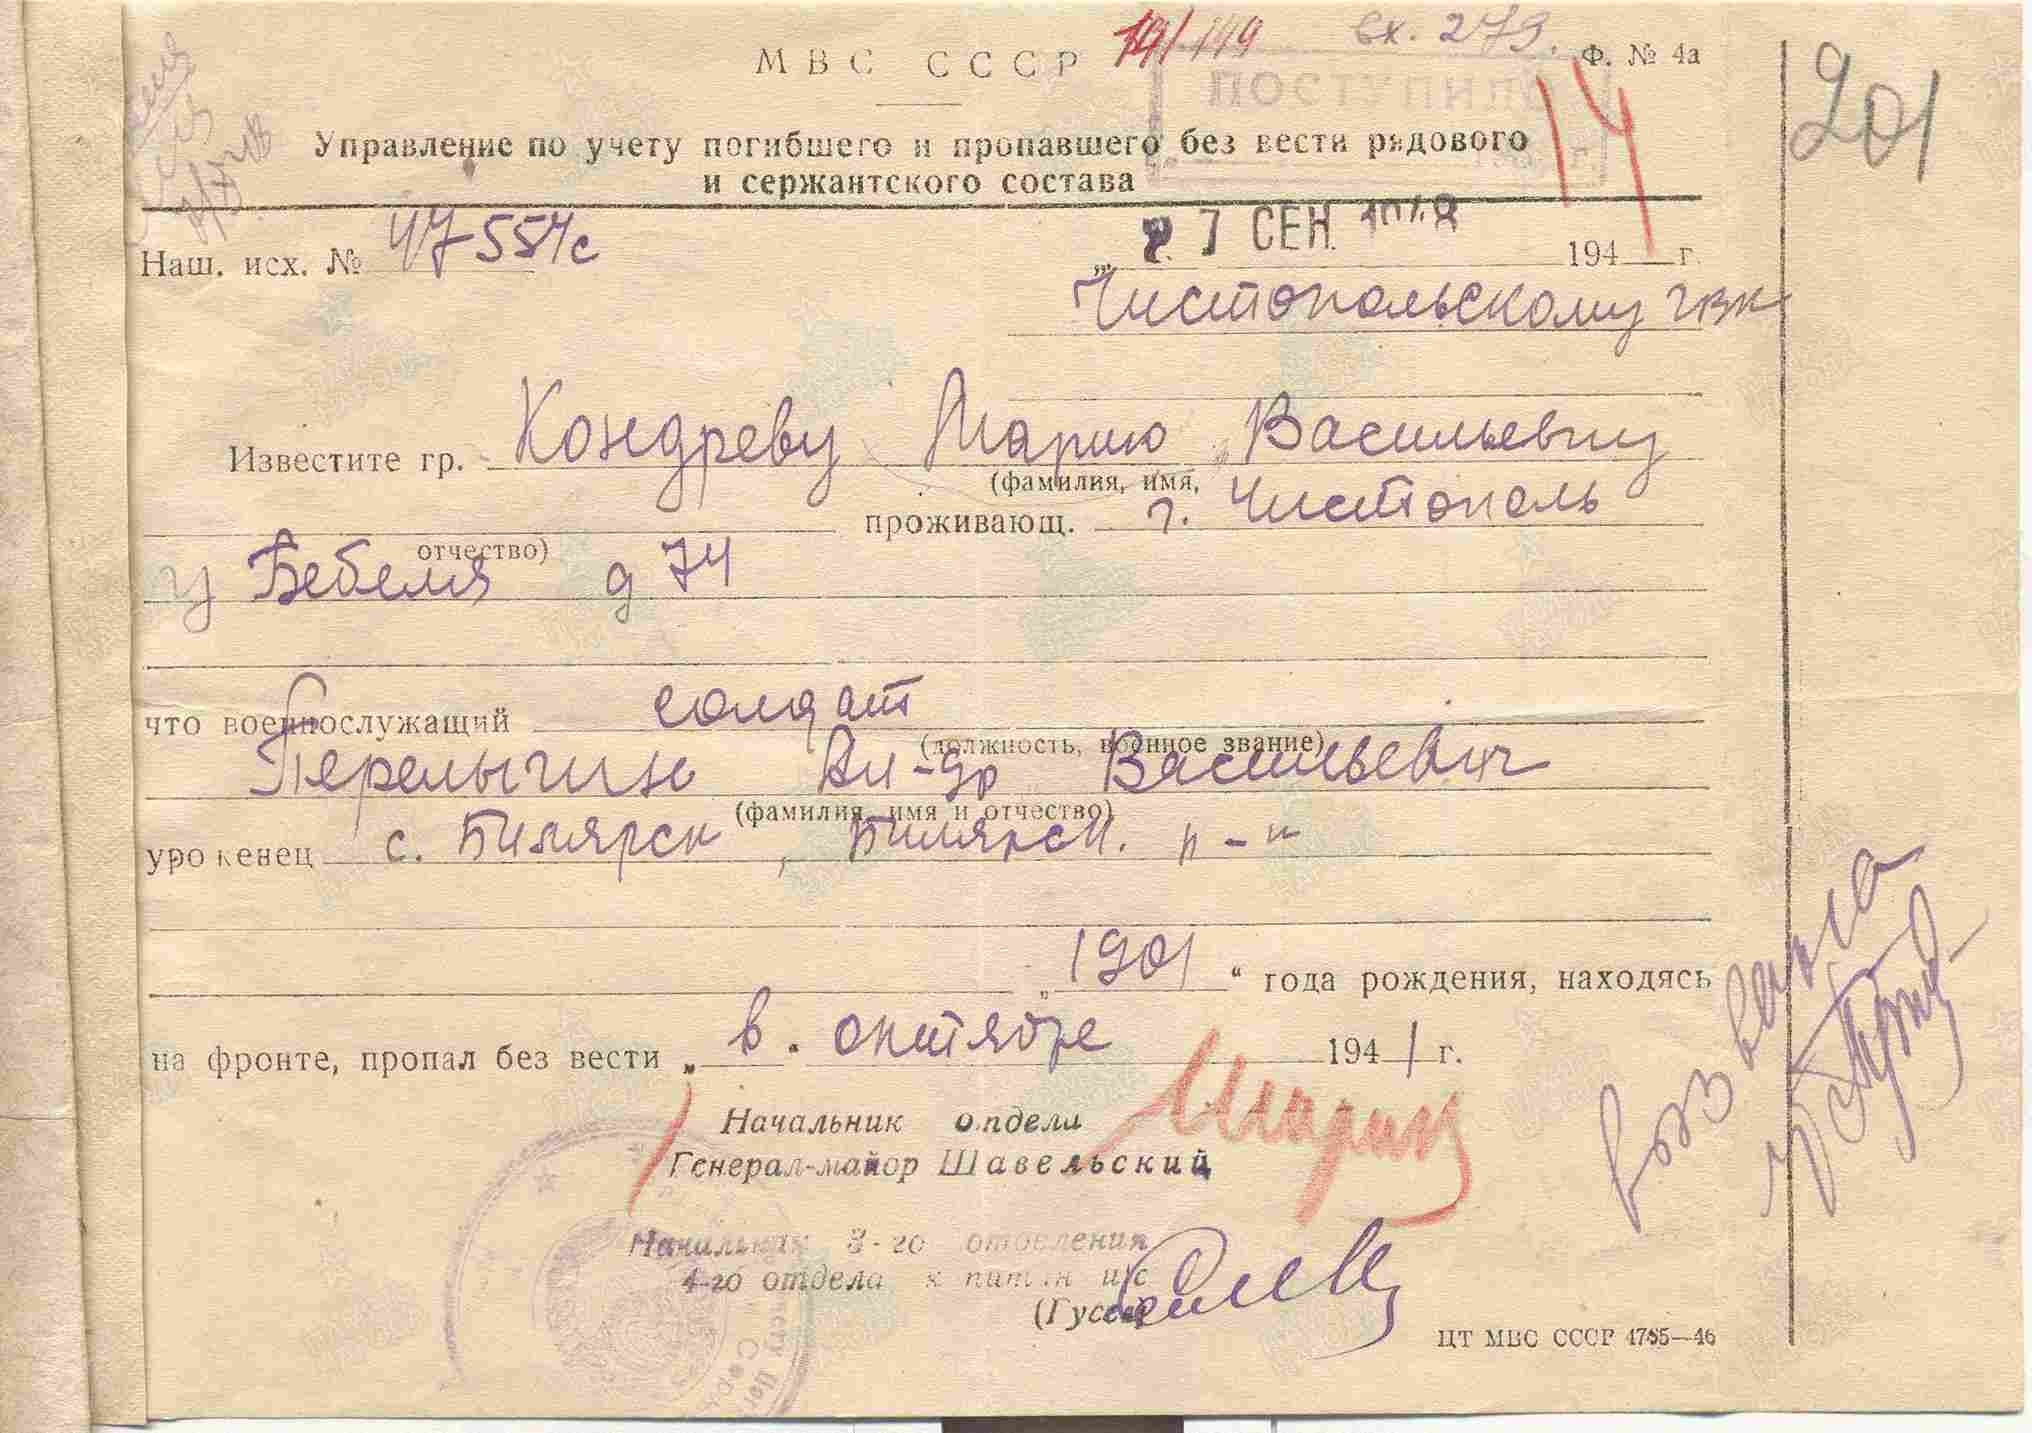 вх. 279.
МВС СССР
Ф. № 4а
ПОСТУПИЛО
14
201
Управление по учету погибшего и пропавшего без вести рядового
и сержантского состава
Наш. исх. № 47554с
„ 7 СЕН. 1948 194 г.
Чистопольскому гвк
Известите гр. Кондреву Марию Васильевну
(фамилия, имя,
проживающ. г. Чистополь
отчество)
у Бебеля д 74
что военнослужащий солдат
(должность, военное звание)
Перелыгин Ал-др Васильевич
(фамилия, имя и отчество)
уроженец с. Билярск, Билярск. р-н
„ 1901 “ года рождения, находясь
на фронте, пропал без вести „ в “ октябре 1941 г.
Начальник отдела
Генерал-майор Шавельский
Начальник 3-го отделения
4-го отдела
ЦТ МВС СССР 4765—46